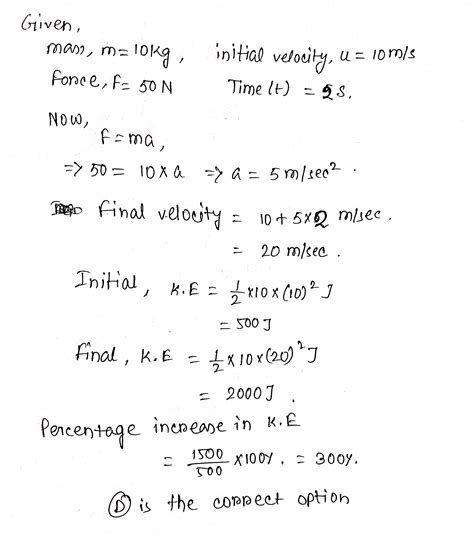 Given,
mass, m = 10kg, initial velocity, u = 10 m/s
force, f = 50 N Time (t) = 2 s.
NOW,
f = ma,
=> 50 = 10 x a => a = 5 m/sec² .
final velocity = 10 + 5x2 m/sec .
= 20 m/sec .
Initial, K.E = 1/2 x10 x (10)² J
= 500 J
final, K.E = 1/2 x 10 x (20)² J
= 2000 J .
Percentage increase in K.E
= 1500/500 x100% . = 300%.
(D) is the correct option